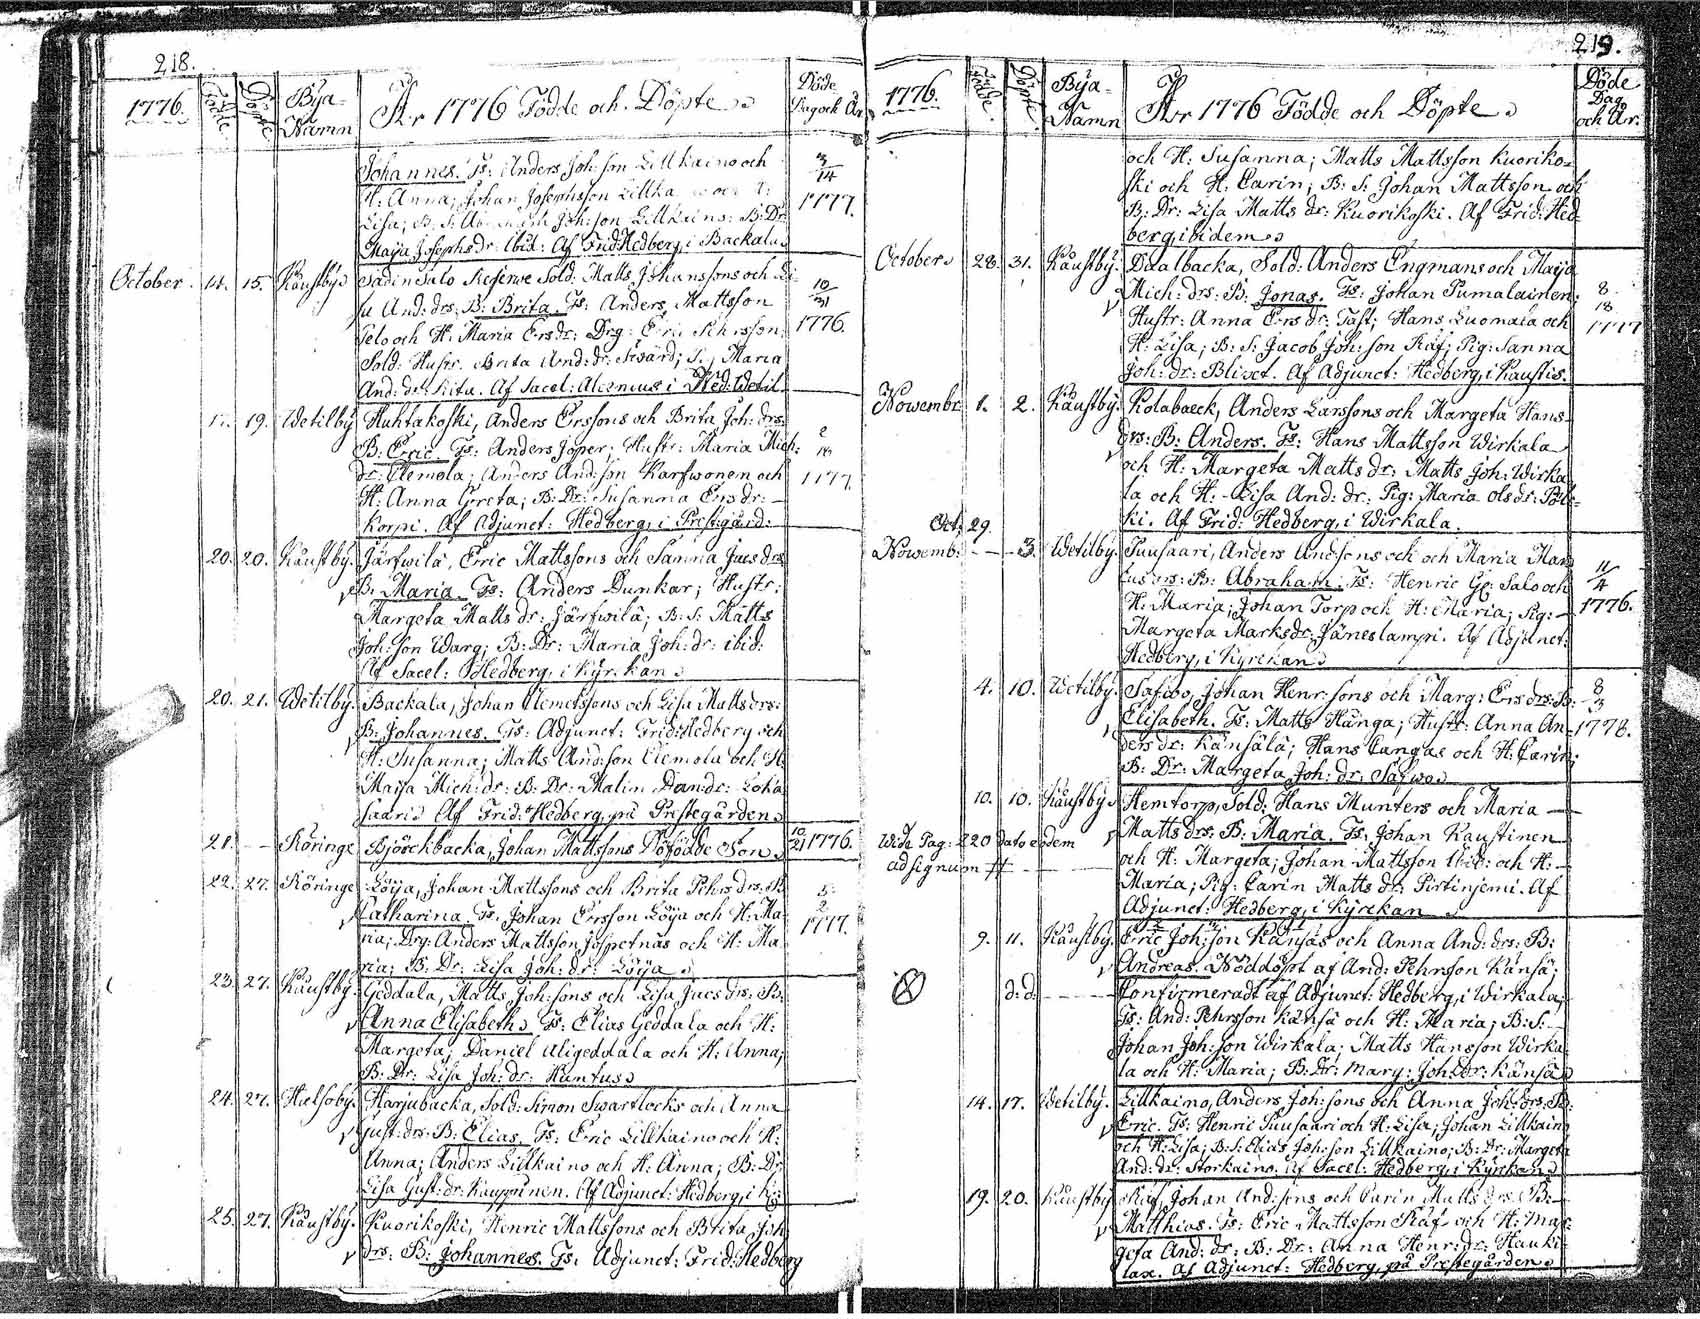 218.
1776.
Födde.
Döpte.
Bya-
Namn
Åhr 1776 Födde och Döpte.
Döde
Dag och År.
Johannes. Fs: Anders Joh:son Lillkaino och
H: Anna; Johan Josephsson
Lisa; B: S: Joh:son Lillkaino: B: Dr
Maija Josephsdr: ibid: Af Frid:Hedberg, i Backala.
3/14
1777.
October. 14. 15. Kaustby. Salo Sold: Matts Johanssons och Li-
sa And:drs: B: Brita. Fs: Anders Mattsson
Pelo och H: Maria Ersdr; Drg: Eric
Sold: Hustr. Brita And:dr: Maria
And:dr: Af Sacel: i Ned:Wetil.
10/31
1776.
19. Wetilby Huhtakoski, Anders Erssons och Brita Joh:drs:
B: Eric. Fs: Anders Jöper; Hustr: Maria Mich:
dr: Clemola; Anders And:son Karfwonen och
H: Anna Greta; B: Dr: Susanna Ersdr: -
Korpi. Af Adjunct: Hedberg, i Prestegård:
2
1777.
20. 20. Kaustby. Järfwilä, Eric Mattssons och Sanna Jacsdrs
B: Maria. Fs: Anders Dunkar; Hustr:
Margeta Matts dr: Järfwilä; B: S: Matts
Joh:son Warg; B: Dr: Maria Joh: dr: ibid:
Af Sacel: Hedberg, i Kyrckan.
20. 21. Wetilby. Backala, Johan Clemetssons och Lisa Mattsdrs:
B: Johannes. Fs: Adjunct: Frid:Hedberg och
H: Susanna; Matts And:son Clemola och H:
Maija Mich: dr: B: Dr: Malin
saari. Af Frid: Hedberg, på Prestegården.
21. - Röringe Björckbacka, Johan Mattssons Dödfödde Son.
10/21 1776.
22. 27. Röringe Löija, Johan Mattssons och Brita Pehrsdrs: B
Catharina. Fs. Johan Ersson Löija och H: Ma-
ria; Drg: Anders Mattsson Jospetnäs och H: Ma
ria; B: Dr: Lisa Joh: dr: Löija.
5
2
1777.
23. 27. Kaustby. Geddala, Matts Joh:sons och Lisa Jacsdrs: B:
Anna Elisabeth. Fs: Elias Geddala och H:
Margeta; Daniel Aligeddala och H: Anna;
B: Dr: Lisa Joh: dr: Humtus.
24. 27. Hälsoby. Harjubacka, Sold: Simon Swartlocks och Anna
Just:drs: B: Elias. Fs: Eric Lillkaino och H:
Anna; Anders Lillkaino och H: Anna; B: Dr
Lisa Gust: dr: Kauppinen. Af Adjunct: Hedberg, i
25. 27. Kaustby. Kuorikoski, Henric Mattssons och Brita Joh
drs: B: Johannes. Fs. Adjunct: Frid:Hedberg
219.
1776.
Födde.
Döpte.
Bya-
Namn
Åhr 1776 Födde och Döpte.
Döde
Dag
och År.
och H: Susanna; Matts Mattsson Kuoriko-
ski och H: Carin; B: S: Johan Mattsson och
B: Dr: Lisa Matts dr: Kuorikoski. Af Frid:Hed-
berg, ibidem.
October. 28. 31. Kaustby. Daalbacka, Sold: Anders Engmans och Maija
Mich: drs: B. Jonas. Fs: Johan Pumalainen;
Hustr: Anna Ersdr: Tast; Hans Luomala och
H: Lisa; B: S: Jacob Joh:son Räf; Pig: Sanna
Joh: dr: Blixet. Af Adjunct: Hedberg, i Kaustis.
8.
18
1777
Nowembr. 1. 2. Kaustby. Kolabaeck, Anders Larssons och Margeta Hans-
drs: B: Anders. Fs: Hans Mattsson Wirkala
och H: Margeta Matts dr: Matts Joh: Wirka
la och H: Lisa And: dr: Pig: Maria Olsdr:
ki. Af Frid: Hedberg, i Wirkala.
Oct: 29.
Nowemb: - - 3. Wetilby. Tuusaari, Anders And:sons och Maria
drs: B: Abraham. Fs: Henric Gö: Salo och
H: Maria; Johan Torp och H: Maria; Pig: -
Margeta Marksdr: Jäneslampi. Af Adjunct:
Hedberg, i Kyrckan.
11/4
1776.
4. 10. Wetilby. Safwo, Johan Henr:sons och Marg: Ersdrs: B:
Elisabeth. Fs: Matts Hänga; Hustr: Anna An-
dersdr: Känsälä; Hans Cangas och H: Carin;
B: Dr: Margeta Joh: dr: Safwo.
8
3
1778.
10. 10. Kaustby. Hemtorp, Sold: Hans Munters och Maria
Mattsdrs: B: Maria. Fs: Johan Kaustinen
och H: Margeta; Johan Mattsson ibid: och H: -
Maria; Pig: Carin Matts dr: Pirtinjemi. Af
Adjunct: Hedberg, i Kyrckan
Wide Pag: 220 dato eodem
ad signum #
9. 11. Kaustby. Eric Joh:son Känsäs och Anna And: drs: B:
Andreas. Nöddöpt af And: Pehrsson Känsä;
d: d: Confirmeradt af Adjunct: Hedberg, i Wirkala;
Fs: And: Pehrsson Känsä och H: Maria; B: S: -
Johan Joh:son Wirkala; Matts Hansson Wirka
la och H: Maria; B: Dr: Marg: Joh: dr: Känsä.
14. 17. Wetilby. Lillkaino, Anders Joh:sons och Anna Joh: drs: B:
Eric. Fs: Henric Tuusaari och H: Lisa; Johan Lillkaino
och H: Lisa; B: S: Elias Joh:son Lillkaino; B: Dr: Margeta
And: dr: Storkaino. Af Sacel: Hedberg, i Kyrckan.
19. 20. Kaustby Räf, Johan And:sons och Carin Matts drs: B: -
Matthias. Fs: Eric Mattsson Räf och H: Mar-
geta And: dr: B: Dr: Anna Henr: dr: Hauki-
lax. Af Adjunct: Hedberg, på Prestegården.